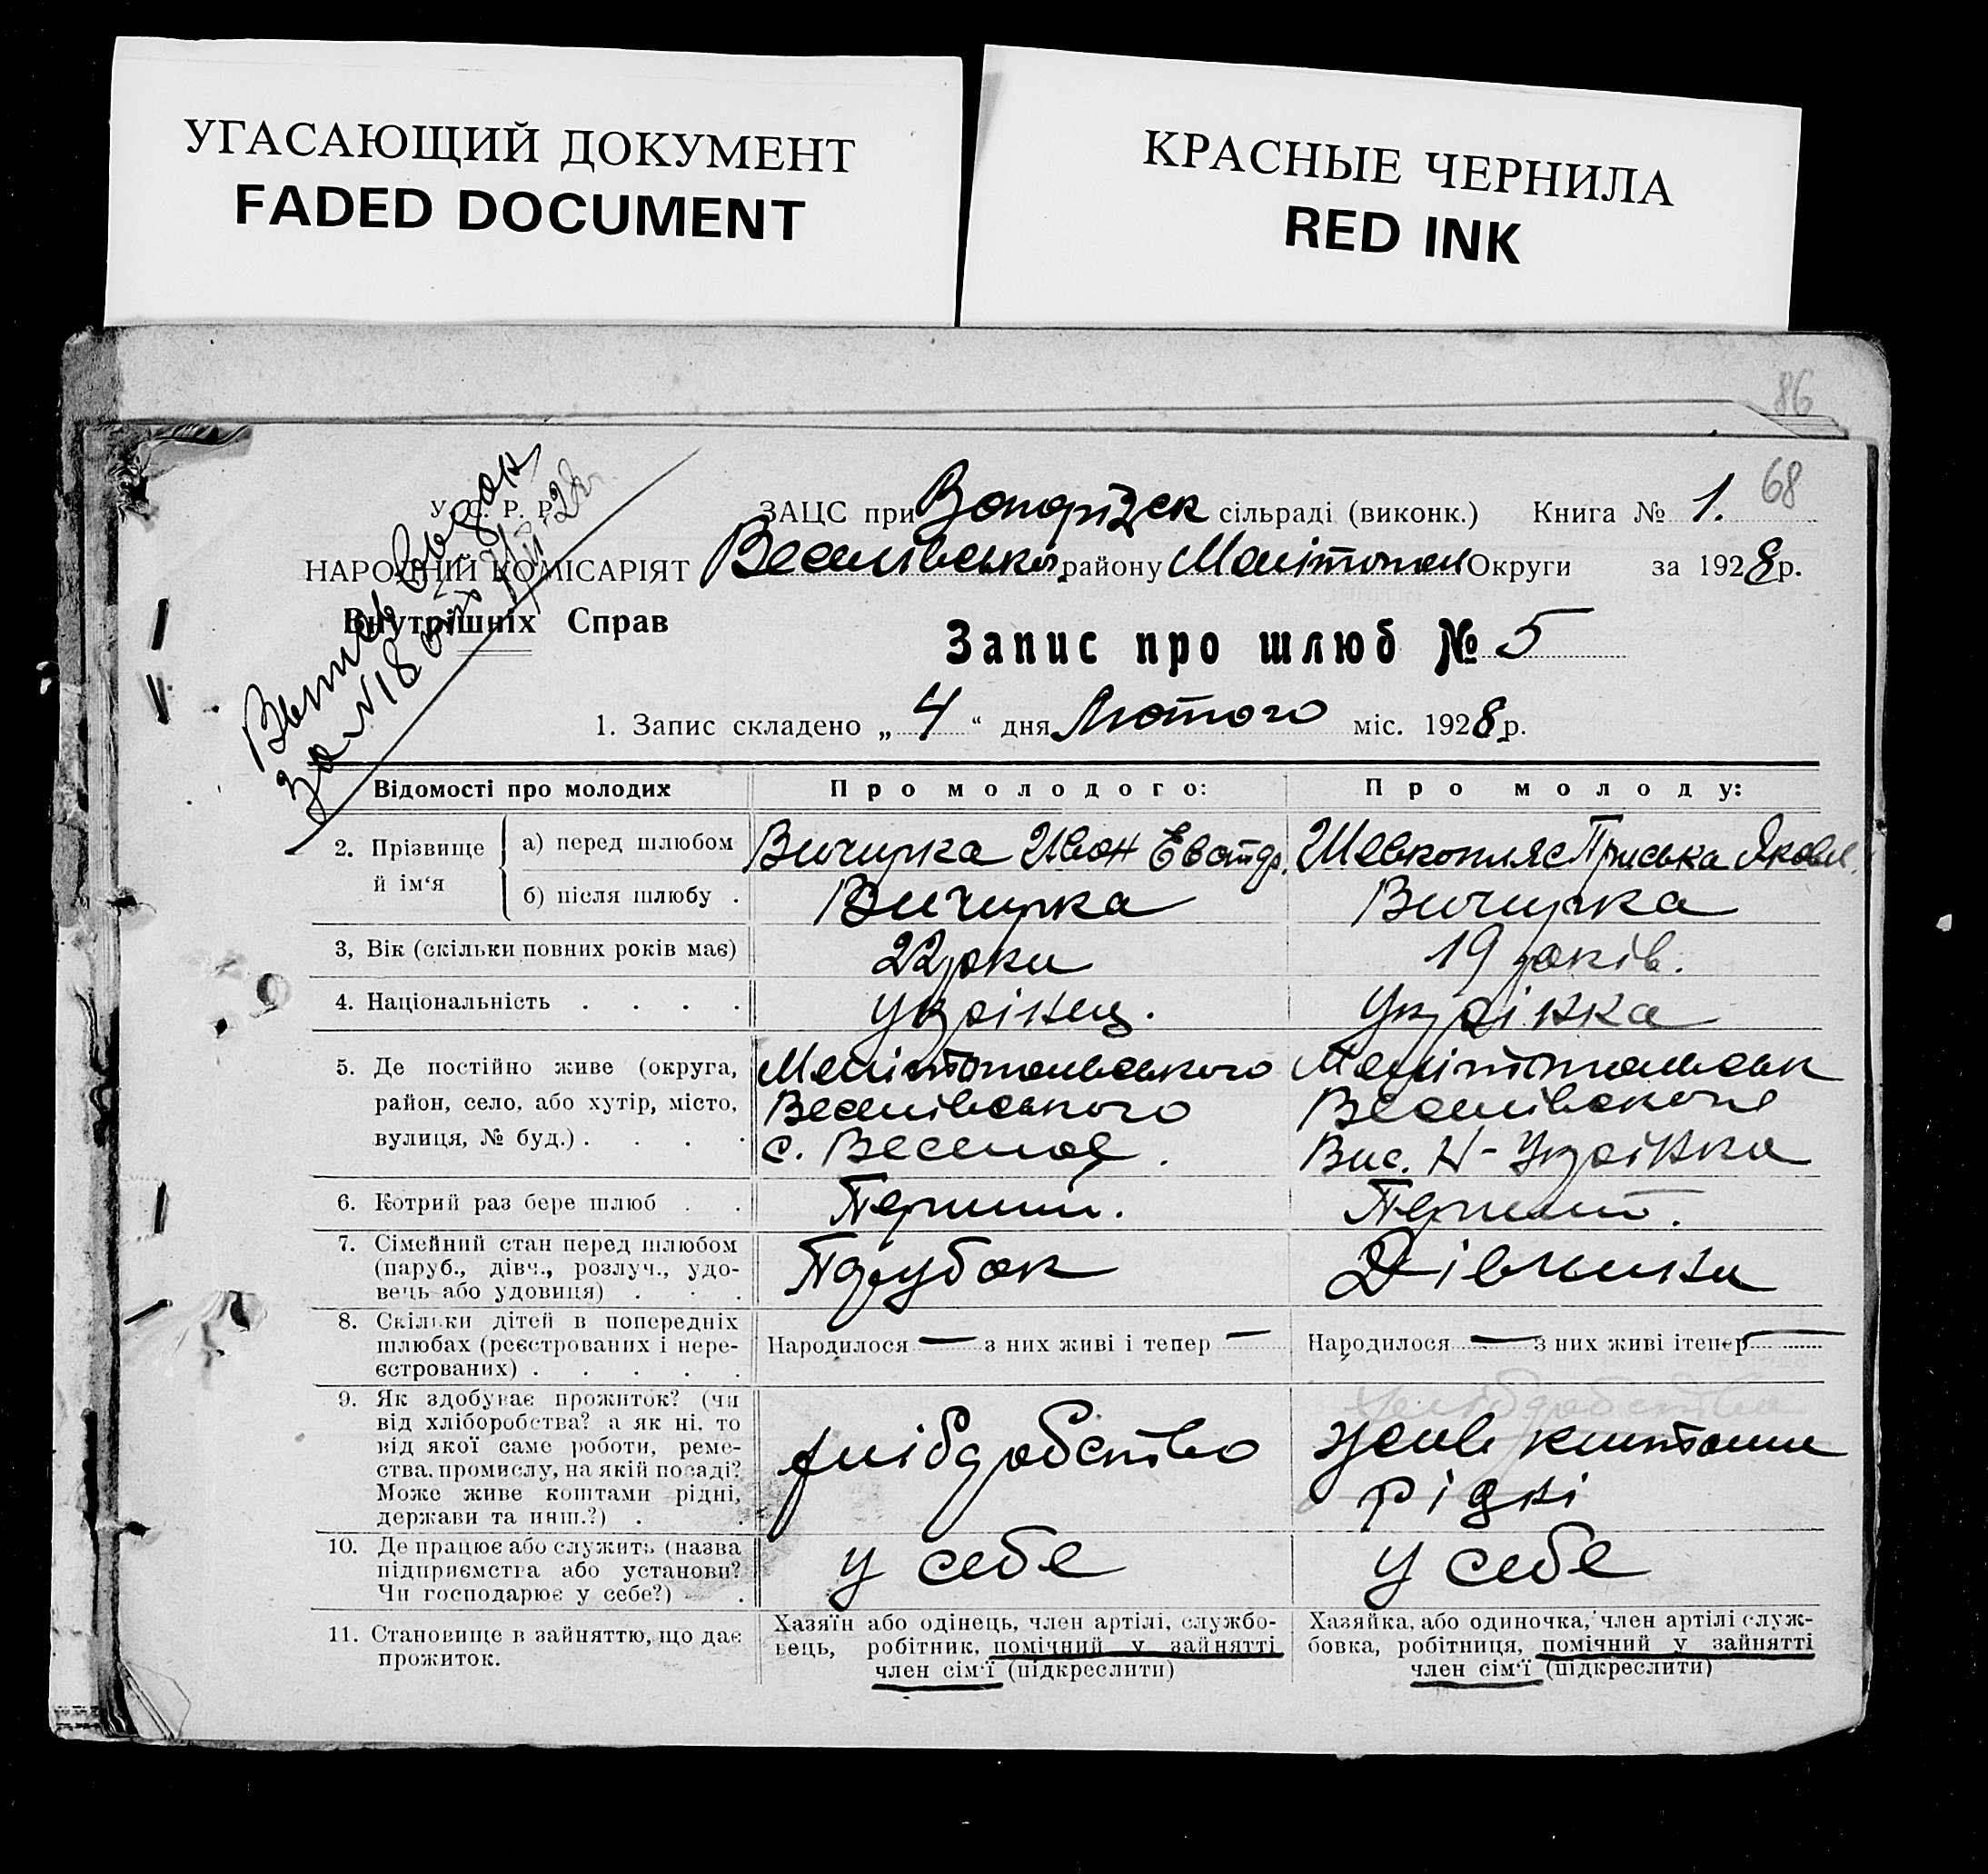 УГАСАЮЩИЙ ДОКУМЕНТ
FADED DOCUMENT
КРАСНЫЕ ЧЕРНИЛА
RED INK
86
68
У. С. Р. Р.
НАРОДНІЙ КОМІСАРІЯТ
Внутрішніх Справ
ЗАЦС при сільраді (виконк.) Книга № 1.
Веселівського району Мелітопол Округи за 1928 р.
Запис про шлюб № 5
1. Запис складено „ 4 “ дня Лютого міс. 1928 р.
Відомості про молодих
Про молодого:
Про молоду:
2. Прізвище й ім‘я
а) перед шлюбом
Вичирка Иван Евстдр.
Шевкопляс Приська Яковл.
б) після шлюбу .
Вичирка
Вичирка
3, Вік (скільки повних років має)
22 роки
19 років.
4. Національність . . . .
Українец.
Українка
5. Де постійно живе (округа,
район, село, або хутір, місто,
вулиця, № буд.) . . . .
Мелітопольського
Веселівського
с. Веселое.
Мелітопольськ
Веселівського
Вис. Н-Українка
6. Котрий раз бере шлюб . .
Перший.
Перший.
7. Сімейний стан перед шлюбом
(паруб., дівч., розлуч., удо-
вець або удовиця) . . .
Парубок
Дівчина
8. Скільки дітей в попередніх
шлюбах (реєстрованих і нере-
єстрованих) . . . . .
Народилося — з них живі і тепер —
Народилося — з них живі і тепер —
9. Як здобуває прожиток? (чи
від хліборобства? а як ні, то
від якої саме роботи, реме-
ства, промислу, на якій посаді?
Може живе коштами рідні,
держави та инш.?) . .
хлібдробство
живе коштами
рідні
10. Де працює або служить (назва
підприємства або установи?
Чи господарює у себе?) .
у себе
у себе
11. Становище в зайняттю, що дає
прожиток.
Хазяїн або одінець, член артілі, службо-
вець, робітник, помічний у зайнятті
член сім‘ї (підкреслити)
Хазяйка, або одиночка, член артілі служ-
бовка, робітниця, помічний у зайнятті
член сім‘ї (підкреслити)